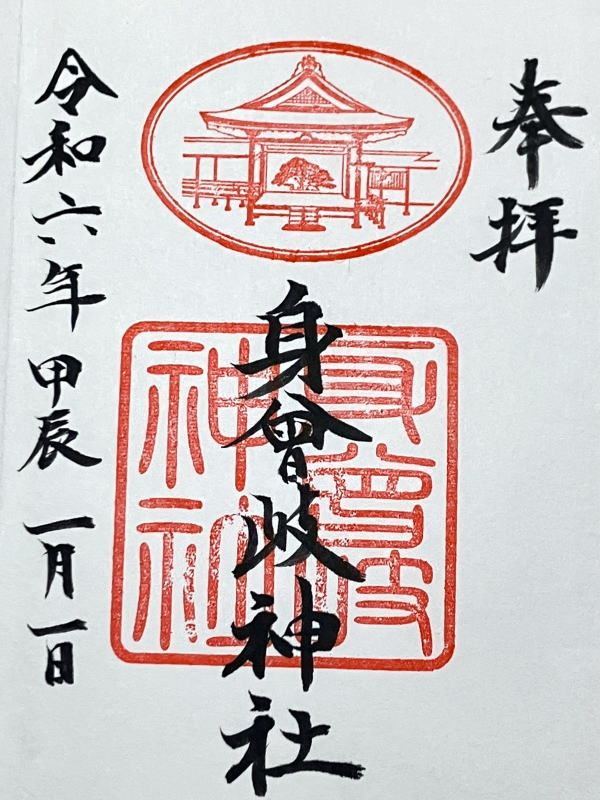 奉拝
身曾岐神社
身曾岐神社
令和六年 甲辰 一月一日